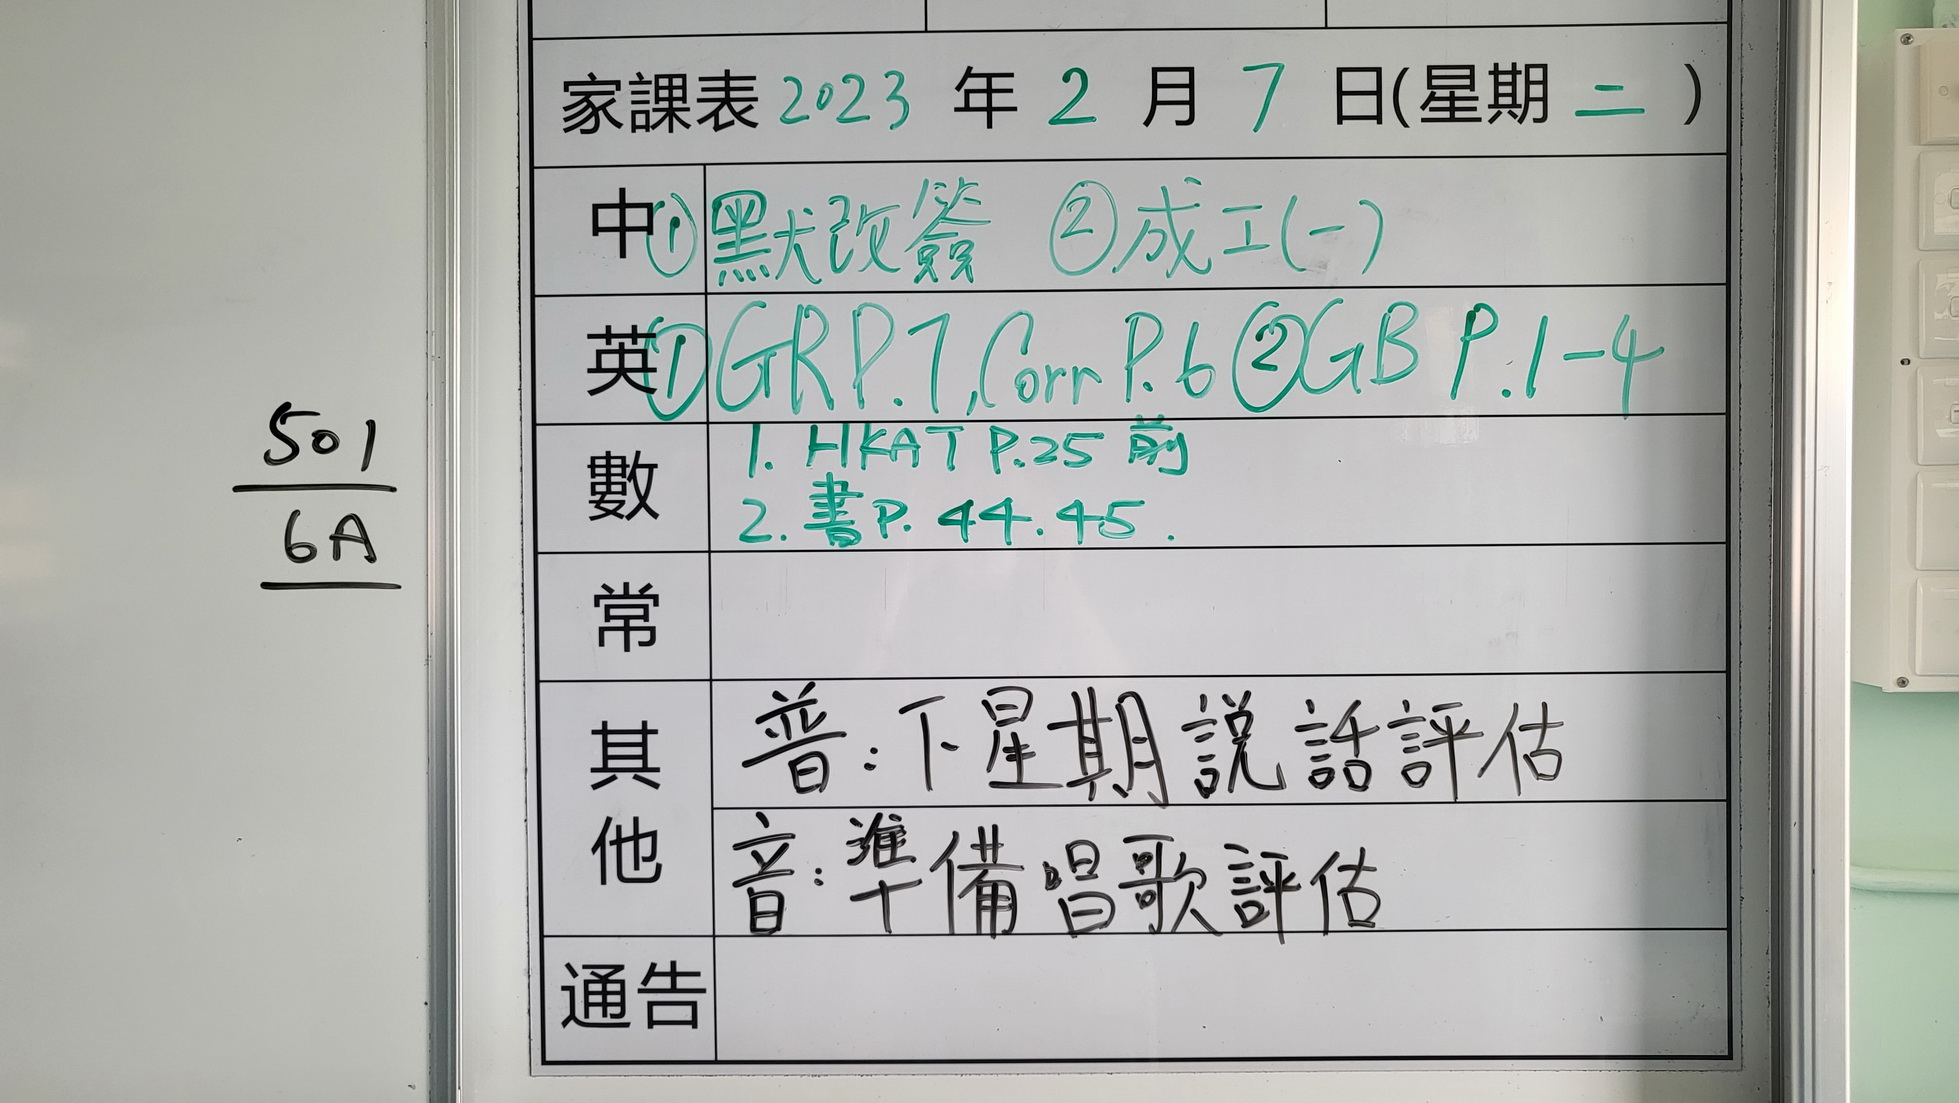 501
6A
家課表 2023 年 2 月 7 日(星期 二 )
中 ① 默改簽 ② 成工(一)
英 ① GR P.7, Corr P.6 ② GB P.1-4
數 1. HKAT P.25 前
2. 書 P. 44.45.
常
其他 普:下星期説話評估
音:準備唱歌評估
通告